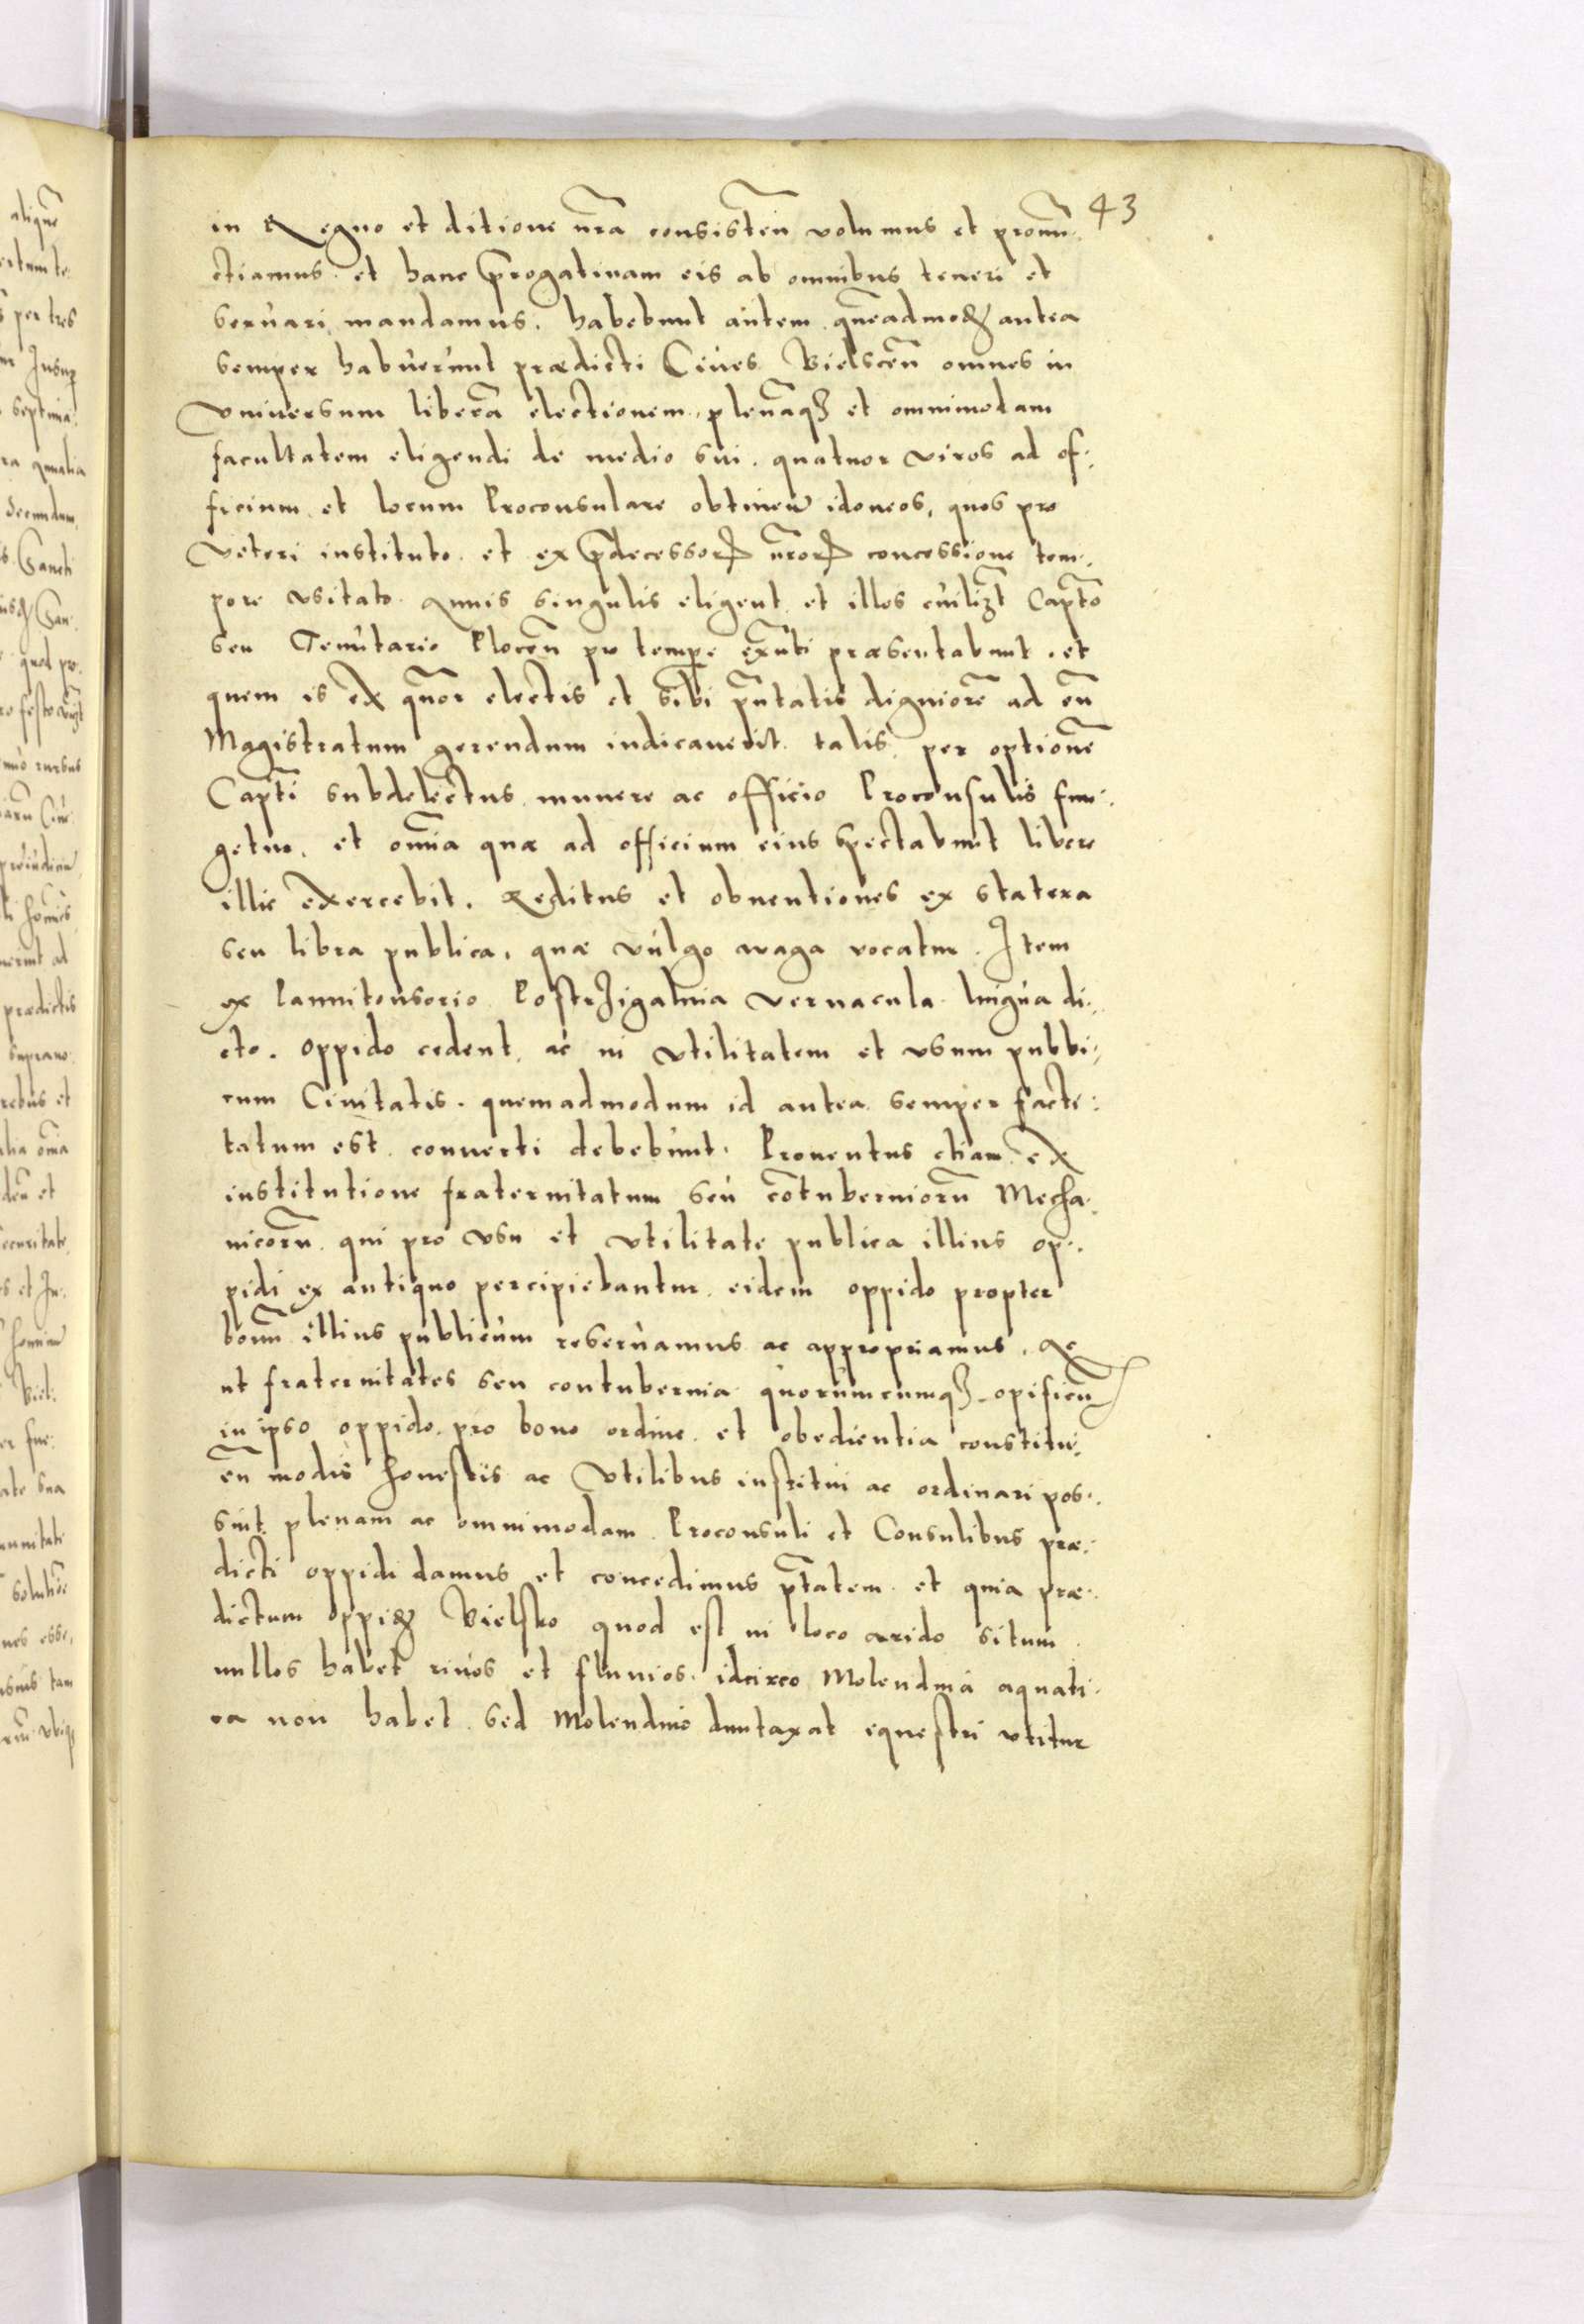 43
in Regno et ditione nr̃a consisteñ volumus et pronũ-
ctiamus. et hanc p̃rogativam eis ab omnibus teneri et
seruari mandamus. habebunt autem quẽadmodũ antea
semper habuerunt prædicti Ciues Bielsceñ omnes in
vniuersum liberã electionem, plenãq3 et omnimodam
facultatem eligendi de medio sui quatuor viros ad of-
ficium et locum Proconsulare obtineñ idoneos, quos pro
veteri instituto et ex p̃decessorũ nr̃orũ concessione tem-
pore vsitato Annis singulis eligent et illos
seu Tenutario Ploceñ pro tempe exñti præsentabunt. et
quem is ex quõr electis et sibi p̃ntatis digniorẽ ad eũ
Magistratum gerendum iudicauerit. talis per optionẽ
Capti subdelectus munere ac officio Proconsulis fun-
getur. et om̃ia quæ ad officium eius spectabunt libere
illic exercebit. Reditus et obuentiones ex statera
seu libra publica, quæ vulgo waga vocatur. Item
ex Pannitonsorio Postrzigalnia vernacula lingua di-
cto. oppido cedent, ac in vtilitatem et vsum pubbi-
cum Ciuitatis. quemadmodum id antea semper facti-
tatum est conuerti debebunt. Prouentus etiam ex
institutione fraternitatum seu cõtuberniorũ Mecha-
nicorũ qui pro vsu et vtilitate publica illius op-
pidi ex antiquo percipiebantur eidem oppido propter
bonũ illius publicum reseruamus ac appropriamus. Ac
ut fraternitates seu contubernia quorumcumq3 opificũ
in ipso oppido pro bono ordine et obedientia constitu-
eñ modis honestis ac vtilibus institui ac ordinari pos-
sint plenam ac omnimodam Proconsuli et Consulibus præ-
dicti oppidi damus et concedimus p̃tatem. et quia præ-
dictum oppidũ Bielsko quod est in loco arido situm
nullos habet riuos et fluuios. idcirco Molendina aquati-
ca non habet sed Molendino duntaxat equestri vtitur